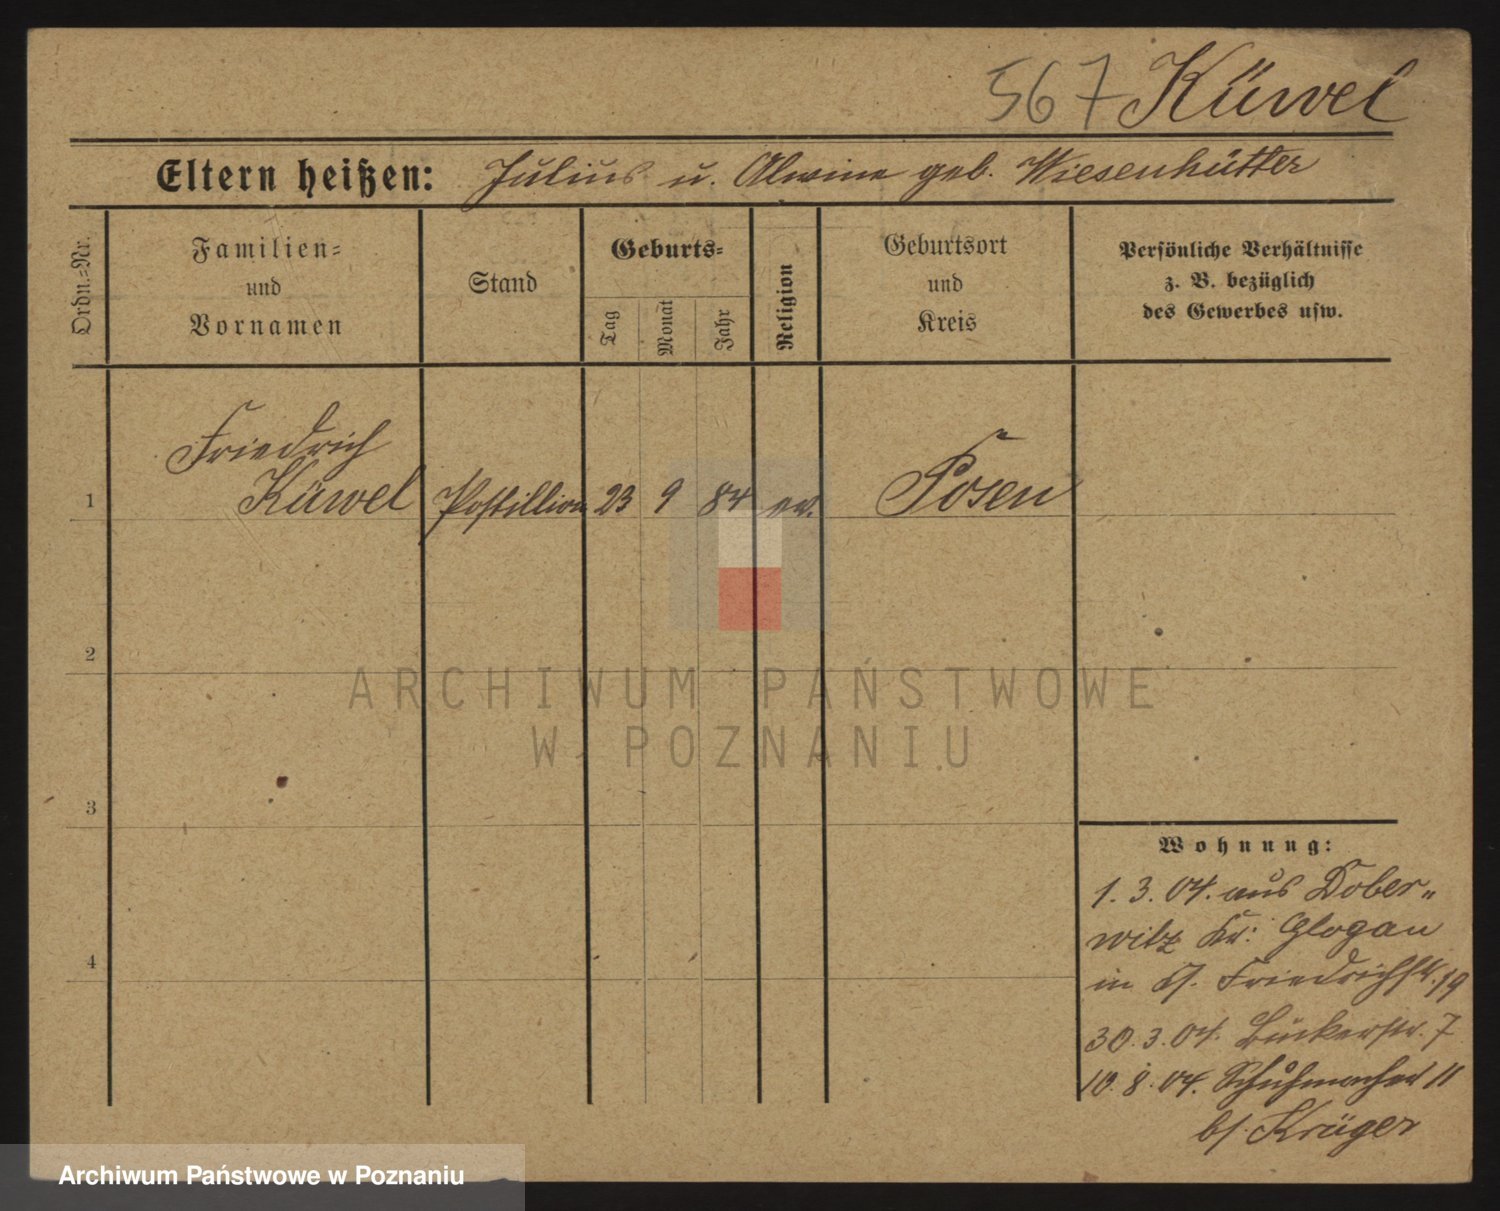 567 Küwel
Eltern heißen: Julius u. Alwine geb. Wiesenhütter
Ordn.=Nr.
Familien=
und
Vornamen
Stand
Geburts=
Tag
Monat
Jahr
Religion
Geburtsort
und
Kreis
Persönliche Verhältnisse
z. B. bezüglich
des Gewerbes usw.
Friedrich
1 Küwel Postillion 23 9 84 ev. Posen
2
ARCHIWUM PAŃSTWOWE
W POZNANIU
3
Wohnung:
1. 3. 04. aus Dober-
witz Kr: Glogau
4
in Friedrichstr. 19
30. 3. 04. Bückerstr. 7
10. 8. 04. Schuhmacher 11
b/ Krüger
Archiwum Państwowe w Poznaniu